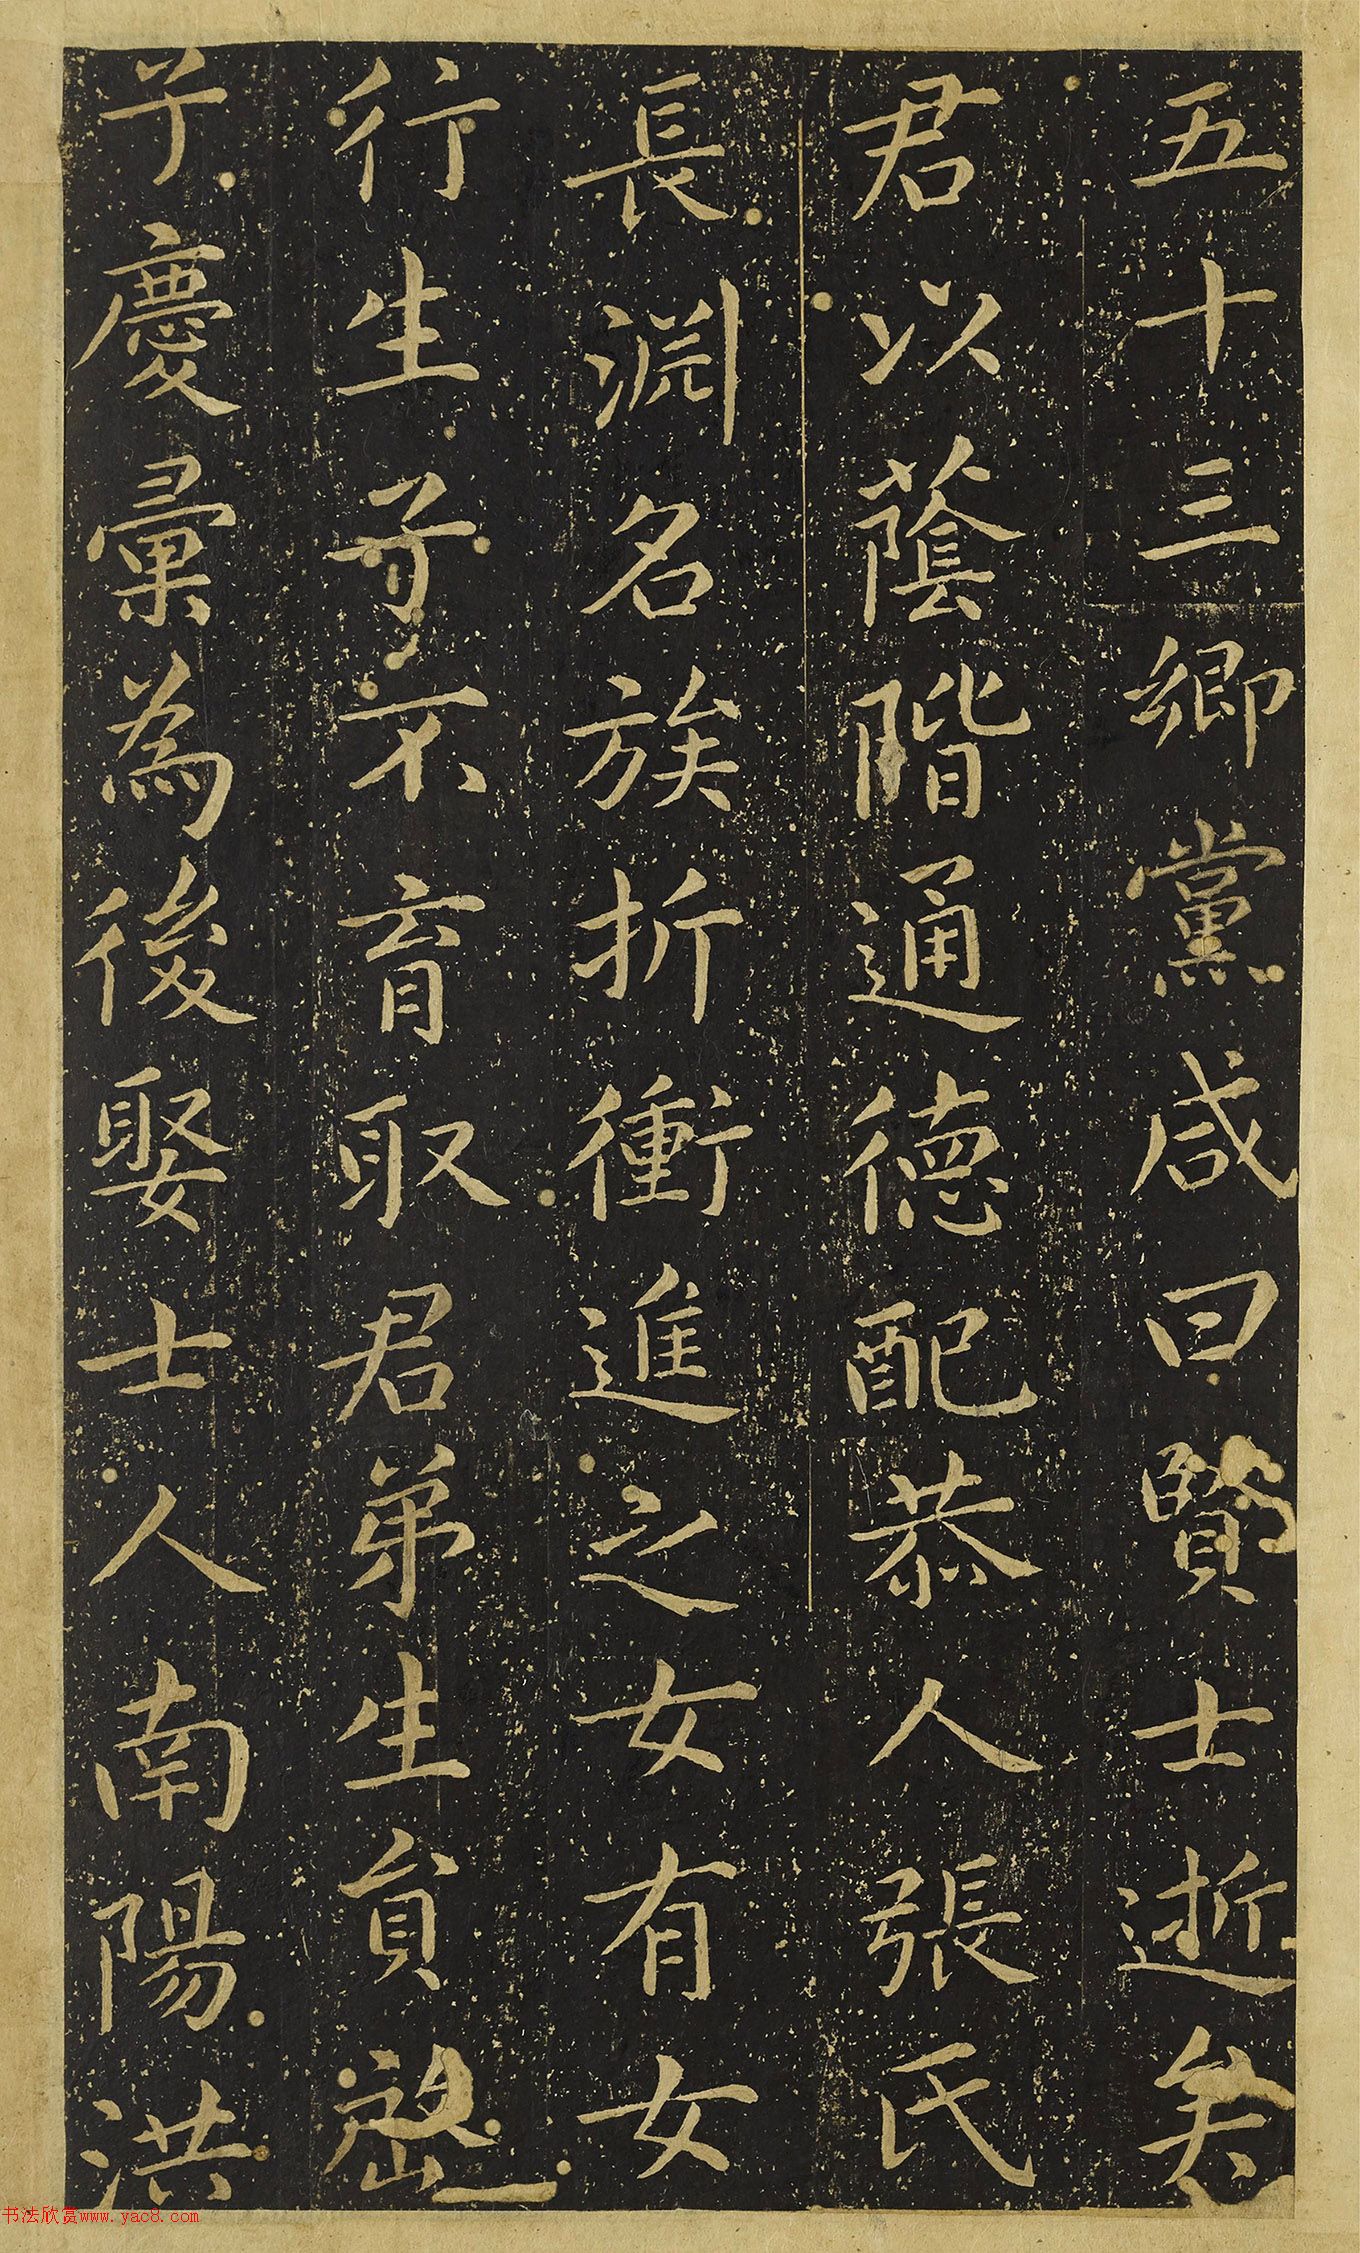 五十三鄉黨咸曰賢士逝矣
君以蔭階通德配恭人張氏
長淵名族折衝進之女有女
行生子不育取君弟生員
子慶彙為後娶士人南陽洪
书法欣赏www.yac8.com